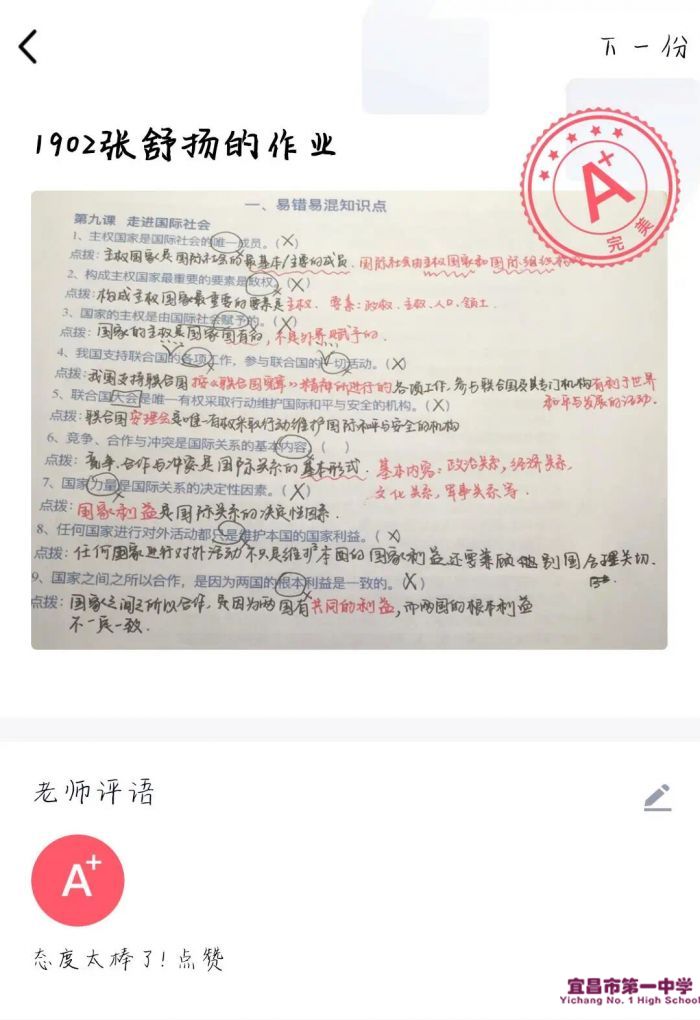 下一份
1902张舒扬的作业
A+
完美
一、易错易混知识点
第九课 走进国际社会
1、主权国家是国际社会的唯一成员。(X)
点拨:主权国家是国际社会的最基本/主要的成员.国际社会由主权国家和国际组织
2、构成主权国家最重要的要素是政权。(X)
点拨:构成主权国家最重要的要素是主权. 要素:政权、主权、人口、领土.
3、国家的主权是由国际社会赋予的。(X)
点拨:国家的主权是国家固有的,不是外界赋予的.
4、我国支持联合国的各项工作,参与联合国的一切活动。(X)
点拨:我国支持联合国按《联合国宪章》精神所进行的各项工作,参与联合国及其专门机构有利于世界
和平与发展的活动.
5、联合国大会是唯一有权采取行动维护国际和平与安全的机构。(X)
点拨:联合国安理会是唯一有权采取行动维护国际和平与安全的机构
6、竞争、合作与冲突是国际关系的基本内容。( )
点拨:竞争、合作与冲突是国际关系的基本形式.基本内容:政治关系,经济关系,
文化关系,军事关系等.
7、国家力量是国际关系的决定性因素。(X)
点拨:国家利益是国际关系的决定性因素.
8、任何国家进行对外活动都只是维护本国的国家利益。(X)
点拨:任何国家进行对外活动不只是维护本国的国家利益还要兼顾他国合理关切.
9、国家之间之所以合作,是因为两国的根本利益是一致的。(X)
点拨:国家之间之所以合作,是因为两国有共同的利益,而两国的根本利益
不一定一致.
老师评语
A+
态度太棒了!点赞
宜昌市第一中学
Yichang No. 1 High School